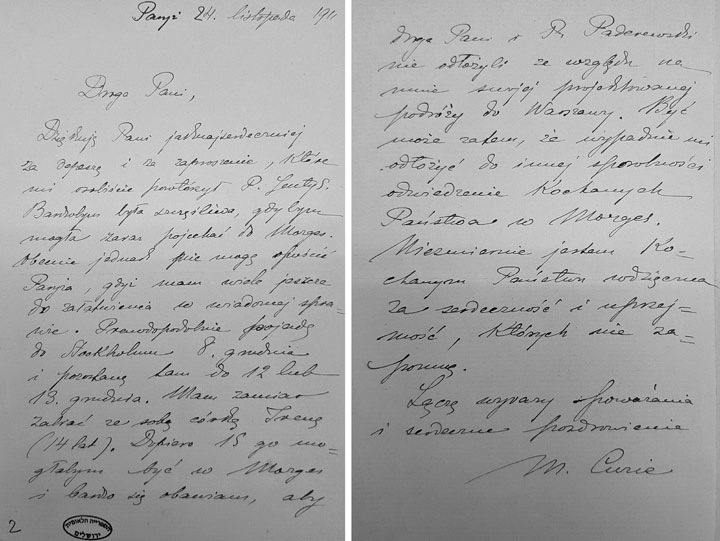 Paryż 24. listopada 1911
Droga Pani,
Dziękuję Pani jaknajserdeczniej
za depeszę i za zaproszenie, które
mi osobiście powtórzył P.
Bardzobym była szczęśliwa, gdybym
mogła zaraz pojechać do Morges.
Obecnie jednak nie mogę opuścić
Paryża, gdyż mam wiele jeszcze
do załatwienia w wiadomej spra=
wie. Prawdopodobnie pojadę
do Stockholmu 8. grudnia
i pozostanę tam do 12 lub
13. grudnia. Mam zamiar
zabrać ze sobą córkę Irenę
(14 lat). Dopiero 15 go mo=
głabym być w Morges
i bardzo się obawiam, aby
2
הספרייה הלאומית
ירושלים
droga Pani i P. Paderewski
nie odłożyli ze względu na
mnie swojej projektowanej
podróży do Warszawy. Być
może zatem, że wypadnie mi
odłożyć do innej sposobności
odwiedzenie Kochanych
Państwa w Morges.
Niezmiernie jestem Ko=
chanym Państwu wdzięczna
za serdeczność i uprzej=
mość, których nie za=
pomnę.
Łączę wyrazy poważania
i serdeczne pozdrowienie
M. Curie